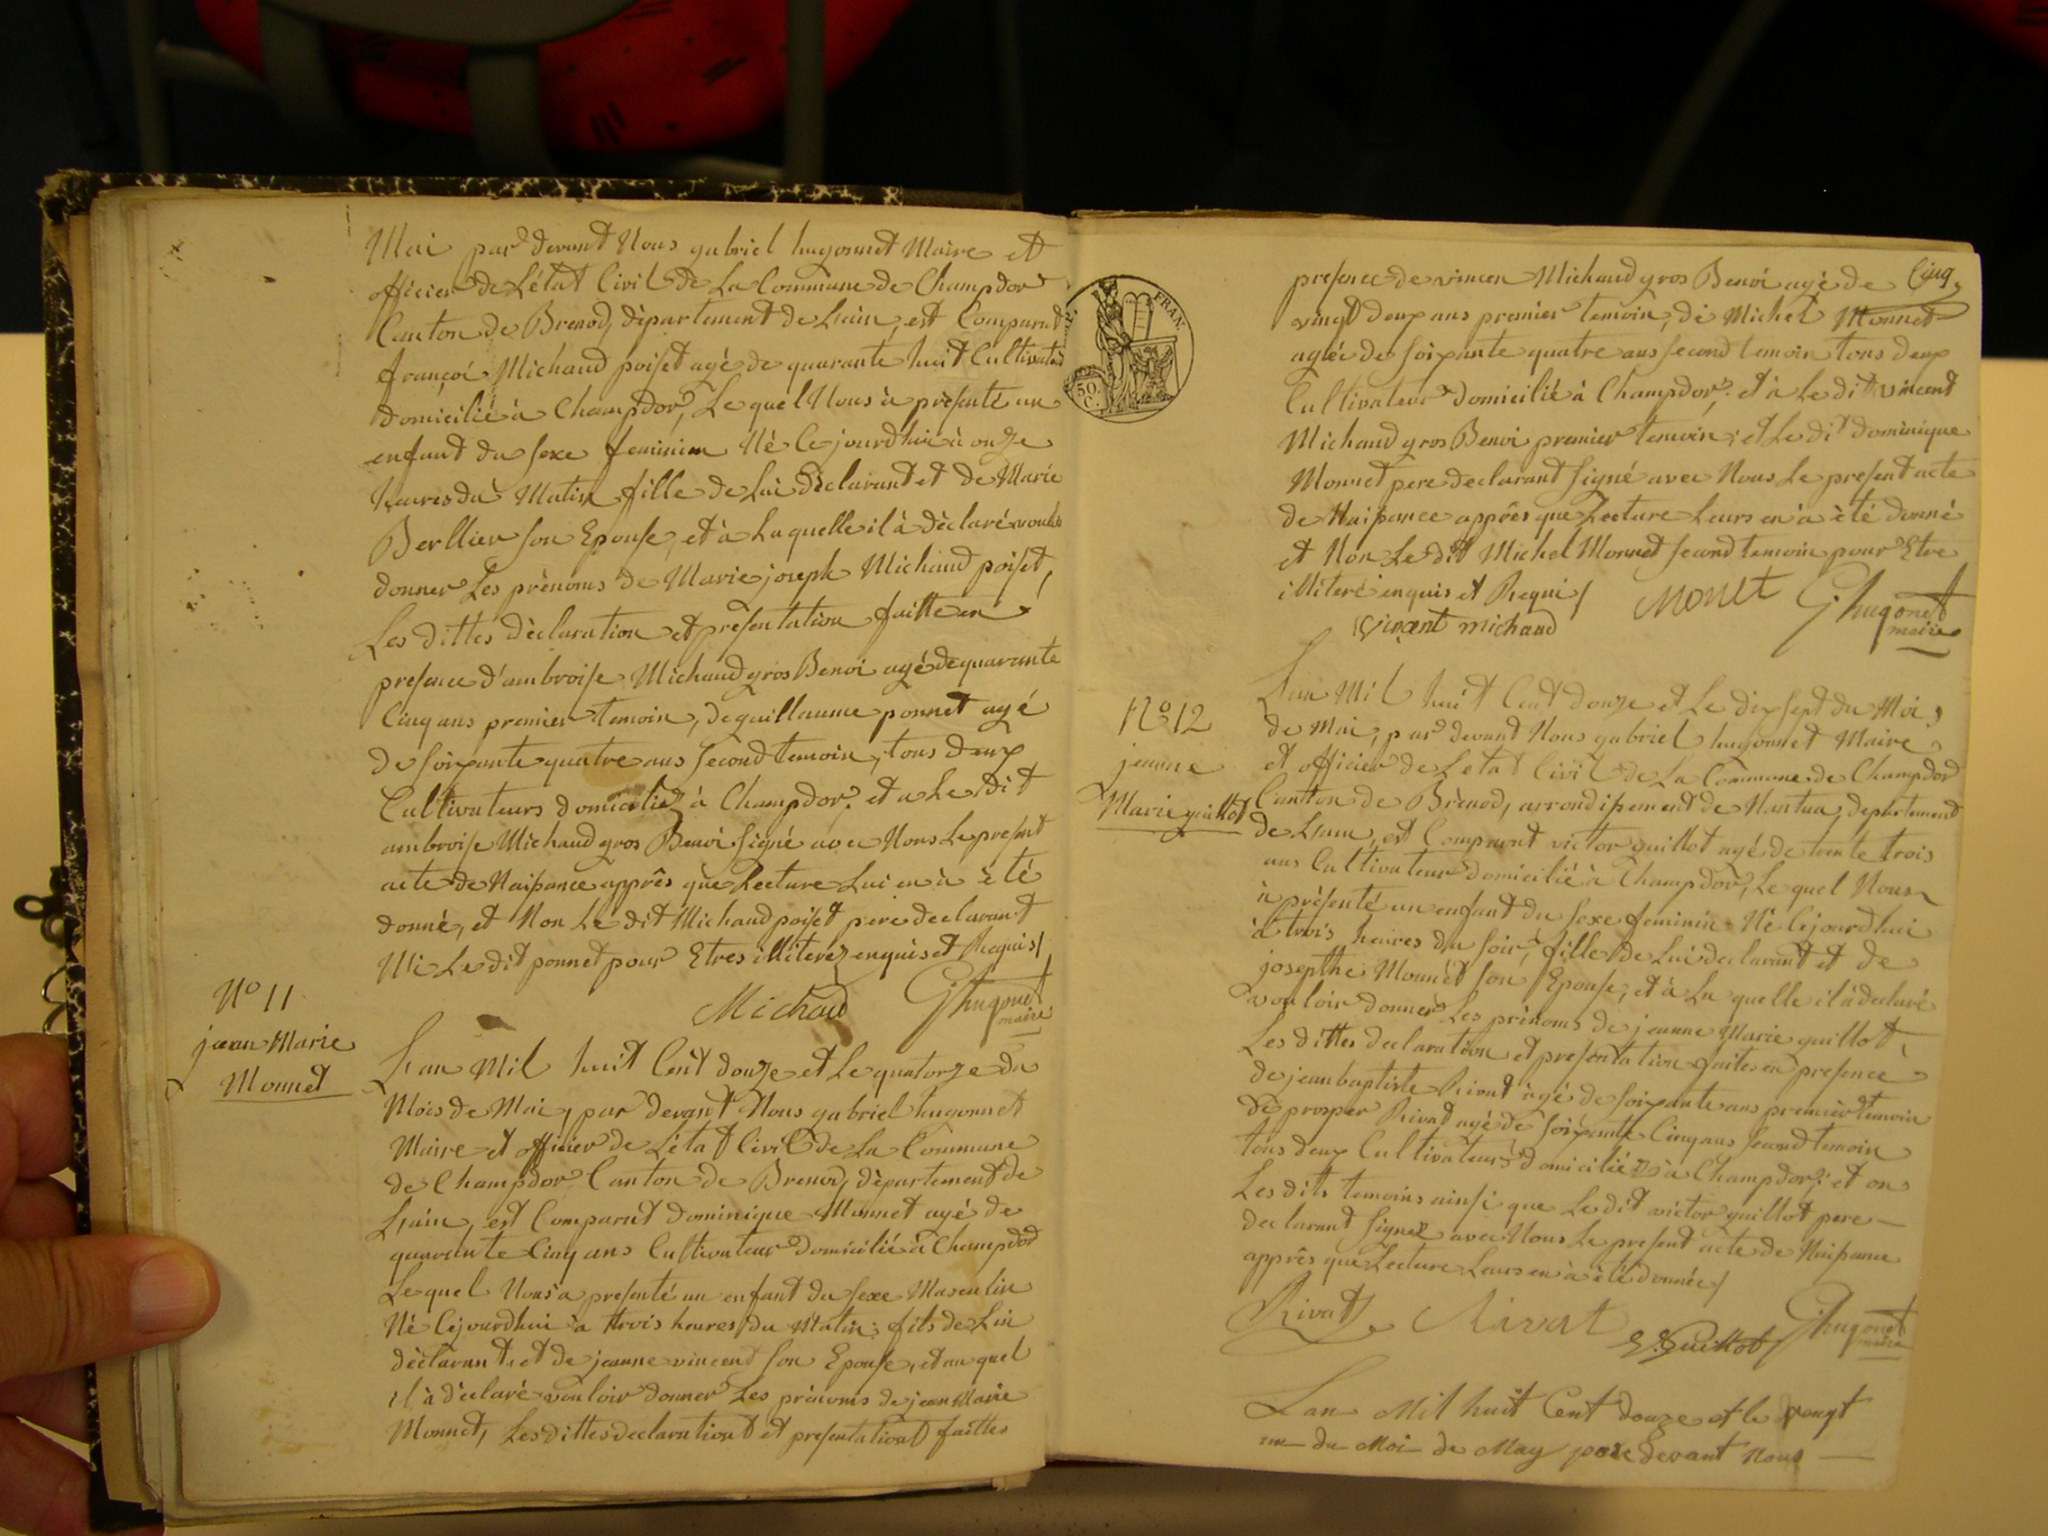 Mai par devant Nous gabriel hugonnet Maire et
officier de L'état Civil de La Commune de Champdor
Canton de Brenod, département de Lain, est Comparut
françoi Michaud poiset agé de quarante huit Cultivateur
domicilié à Champdor, Le quel Nous à presenté un
enfant du sexe feminin Né Ce jourd'hui à onze
heures du Matin fille de Lui déclarant et de Marie
Berllier son Epouse, et à Laquelle il à déclaré vouloir
donner Les prénoms de Marie joseph Michaud poiset,
Les dittes déclaration et présentation faitte en
presence d'ambroise Michaud gros Benoi agé de quarante
Cinq ans premier temoin, de guillaume ponnet agé
de soixante quatre ans second temoin, tous deux
Cultivateurs domiciliéz à Champdor, et a Le dit
ambroise Michaud gros Benoi signé avec Nous Le present
acte de Naissance apprês que Lecture Lui en à été
donné, et Non Le dit Michaud poiset pere declarant
Ni Le dit ponnet pour Etres illiterez enquis et Requis/
Michaud G. hugonet
maire
N° 11
jean Marie
Monnet
Lan Mil huit Cent douze et Le quatorze du
Mois de Mai, par devant Nous gabriel hugonnet
Maire et officier de L'état Civil de La Commune
de Champdor Canton de Brenod, département de
Lain, est Comparut dominique Monnet agé de
quarante Cinq ans Cultivateur domicilié à Champdor
Le quel Nous a presenté un enfant du sexe Masculin
Né Cejourdhui à trois heures du Matin, fils de Lui
déclarant et de jeanne vincend son Epouse, et au quel
il à déclaré vouloir donner Les prénoms de jean Marie
Monnet, Les dittes declarations et presentations faittes
Cinq
presence de vincen Michaud gros Benoi agé de
vingt deux ans premier temoin, de Michel Monnet
agée de soixante quatre ans second temoin tous deux
Cultivateur domicilié à Champdor, et à Le dit vincent
Michaud gros Benoi premier temoin, et Le dit dominique
Monnet pere declarant signé avec Nous Le present acte
de Naissance apprês que Lecture Leurs en à été donné
et Non Le dit Michel Monnet second temoin pour Etre
illiteré enquis et Requi/
Monet G. hugonet
maire
vincent michaud
N° 12
jeanne
Marie guillot
Lan Mil huit Cent douze et Le dix sept du Mois
de Mai, par devant Nous gabriel hugonnet Maire
et officier de L'état Civil de La Commune de Champdor
Canton de Brénod, arrondissement de Nantua, departement
de Lain, est Comparut victor guillot agé de trente trois
ans Cultivateur domicilié à Champdor, Le quel Nous
à présenté un enfant du sexe feminin Né Cejourdhui
à trois heures du soir, fille de Lui declarant et de
josepthe Monnet son Epouse, et à La quelle il à declaré
vouloir donner Les prénoms de jeanne Marie guillot
Les dittes declaration et presentation faites en presence
de jean baptiste Rivat agé de soixante ans premier temoin
de prosper Rivat agé de soixante Cinq ans second temoin
tous deux Cultivateurs domiciliés à Champdor, et on
Les dits temoins ainsi que Le dit victor guillot pere
declarant signez avec Nous Le present acte de Naissance
apprês que Lecture Leurs en à été donnée/
Rivat Rivat G. hugonet
maire
V. Guillot
Lan Mil huit Cent douze et le vengt
un du Moi de May par devant Nous
50 C.
FRAN.